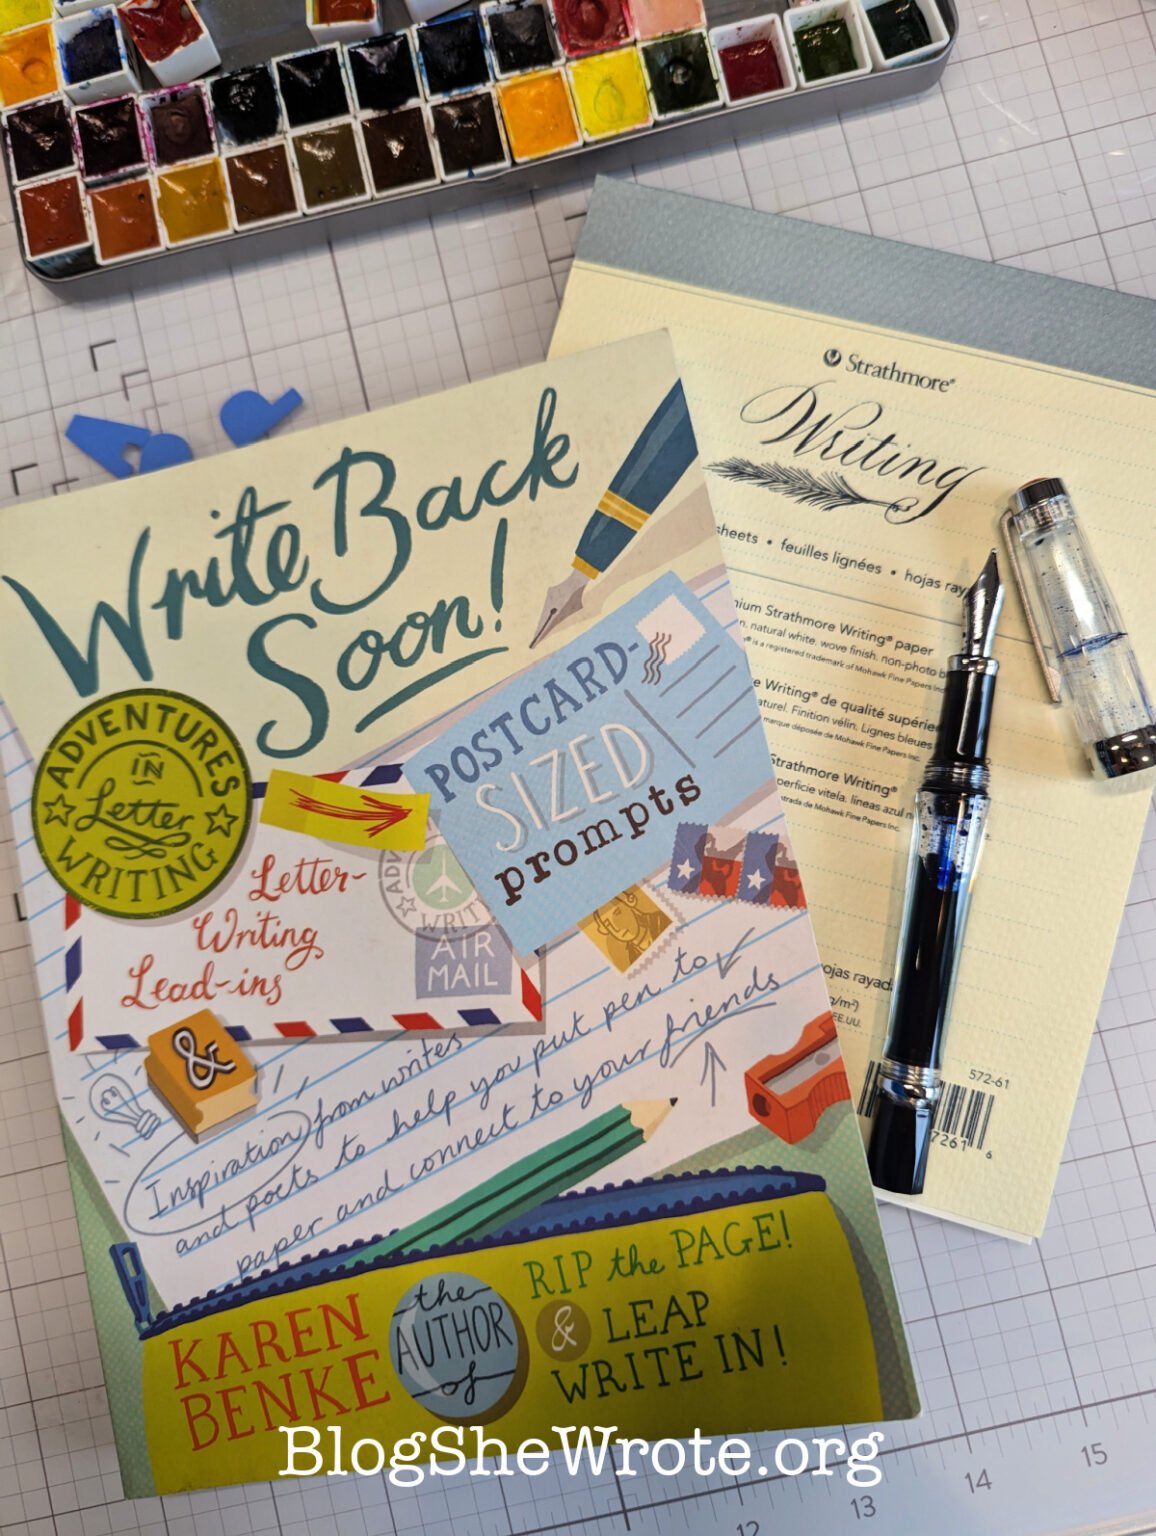 Write Back
Soon!
ADVENTURES
IN
Letter
WRITING
POSTCARD-
SIZED
prompts
Letter-
Writing
Lead-ins
AIR
MAIL
&
Inspiration from writes
and poets to help you put pen to
paper and connect to your friends
KAREN
BENKE
the
AUTHOR
of
RIP the PAGE!
& LEAP
WRITE IN!
Strathmore®
Writing
sheets • feuilles lignées • hojas
Strathmore Writing® paper
natural white. wove finish.
is a registered trademark of Mohawk Fine Papers Inc.
Writing® de qualité
Finition vélin. Lignes bleues
marque déposée de Mohawk Fine Papers Inc.
Strathmore Writing®
vitela. líneas azul
de Mohawk Fine Papers Inc.
EE.UU.
572-61
6
BlogSheWrote.org
12
13
14
15